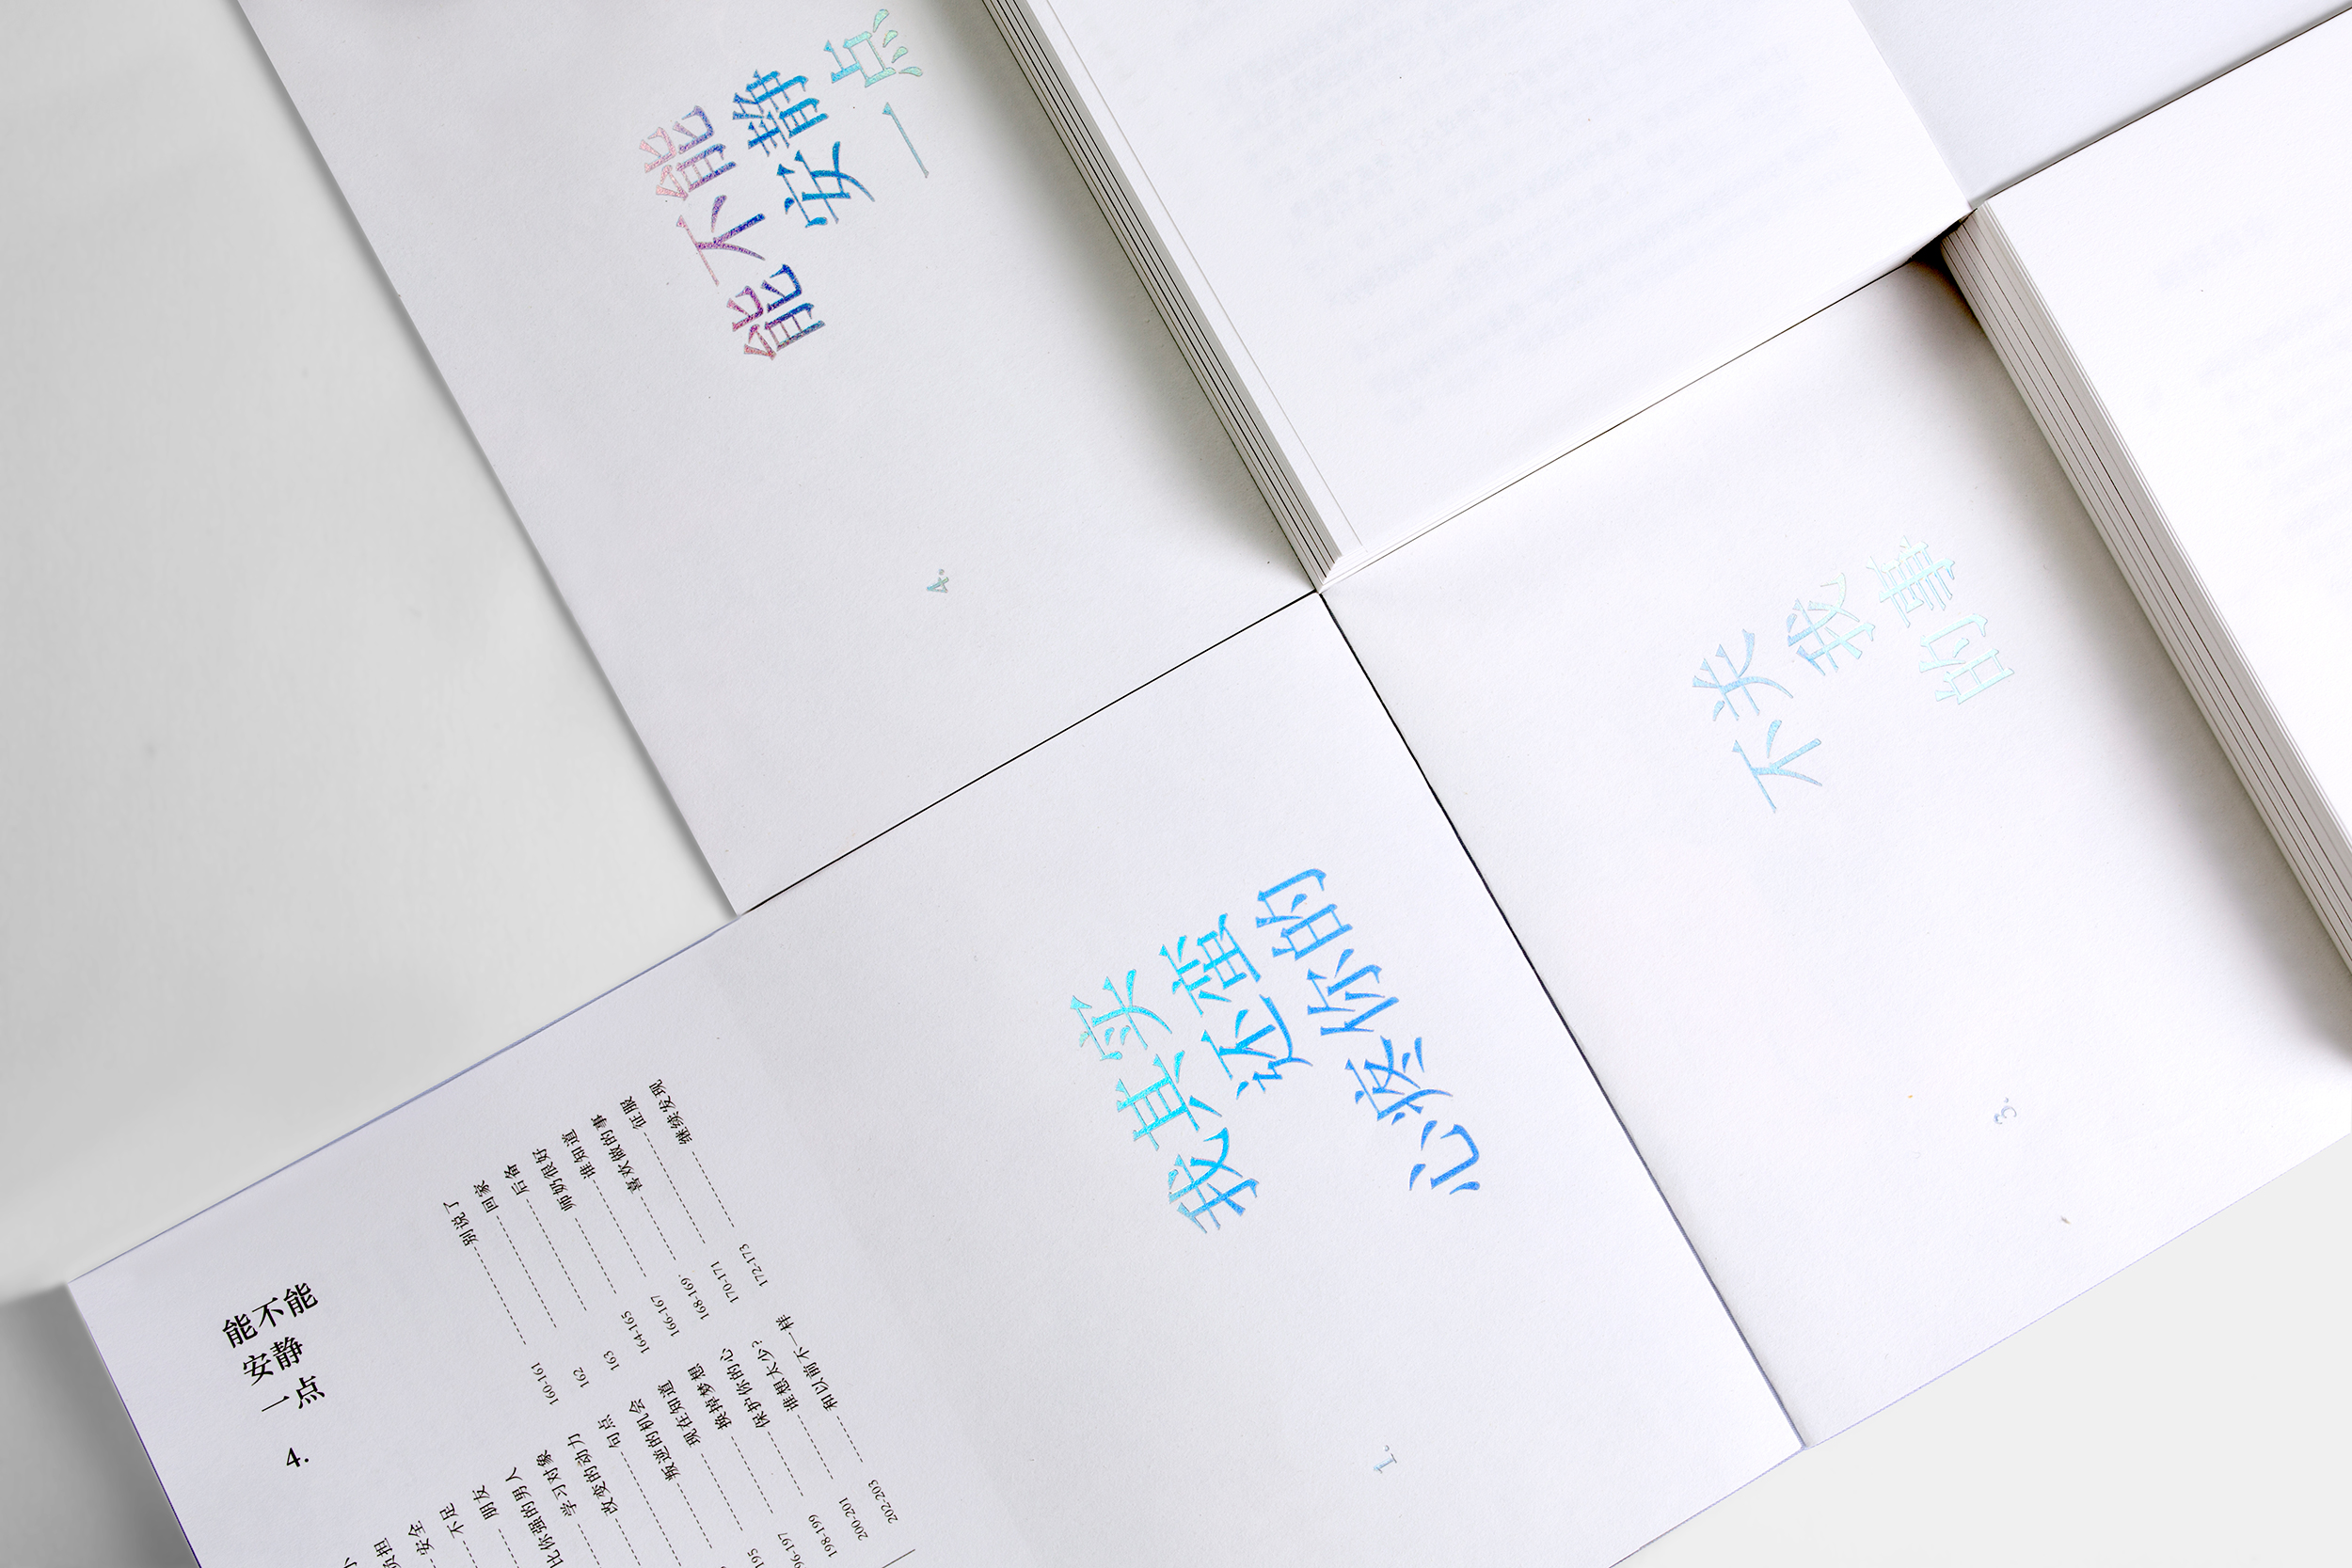 能不能
安静
一点
4.
不关
我
的事
3.
我其实
还蛮
心疼你的
1.
能不能
安静
一点
4.
别说了 160-161
回家 162
后备 163
师奶很好 164-165
谁知道 166-167
喜欢做的事 168-169
征服 170-171
继续发现 172-173
负担
安全
不足
朋友
比你强的男人
学习对象
改变的动力
句点
叛逆的机会
现在知道 195
换掉梦想 96-197
保护你的心 198-199
谁想太少? 200-201
和以前不一样 202-203